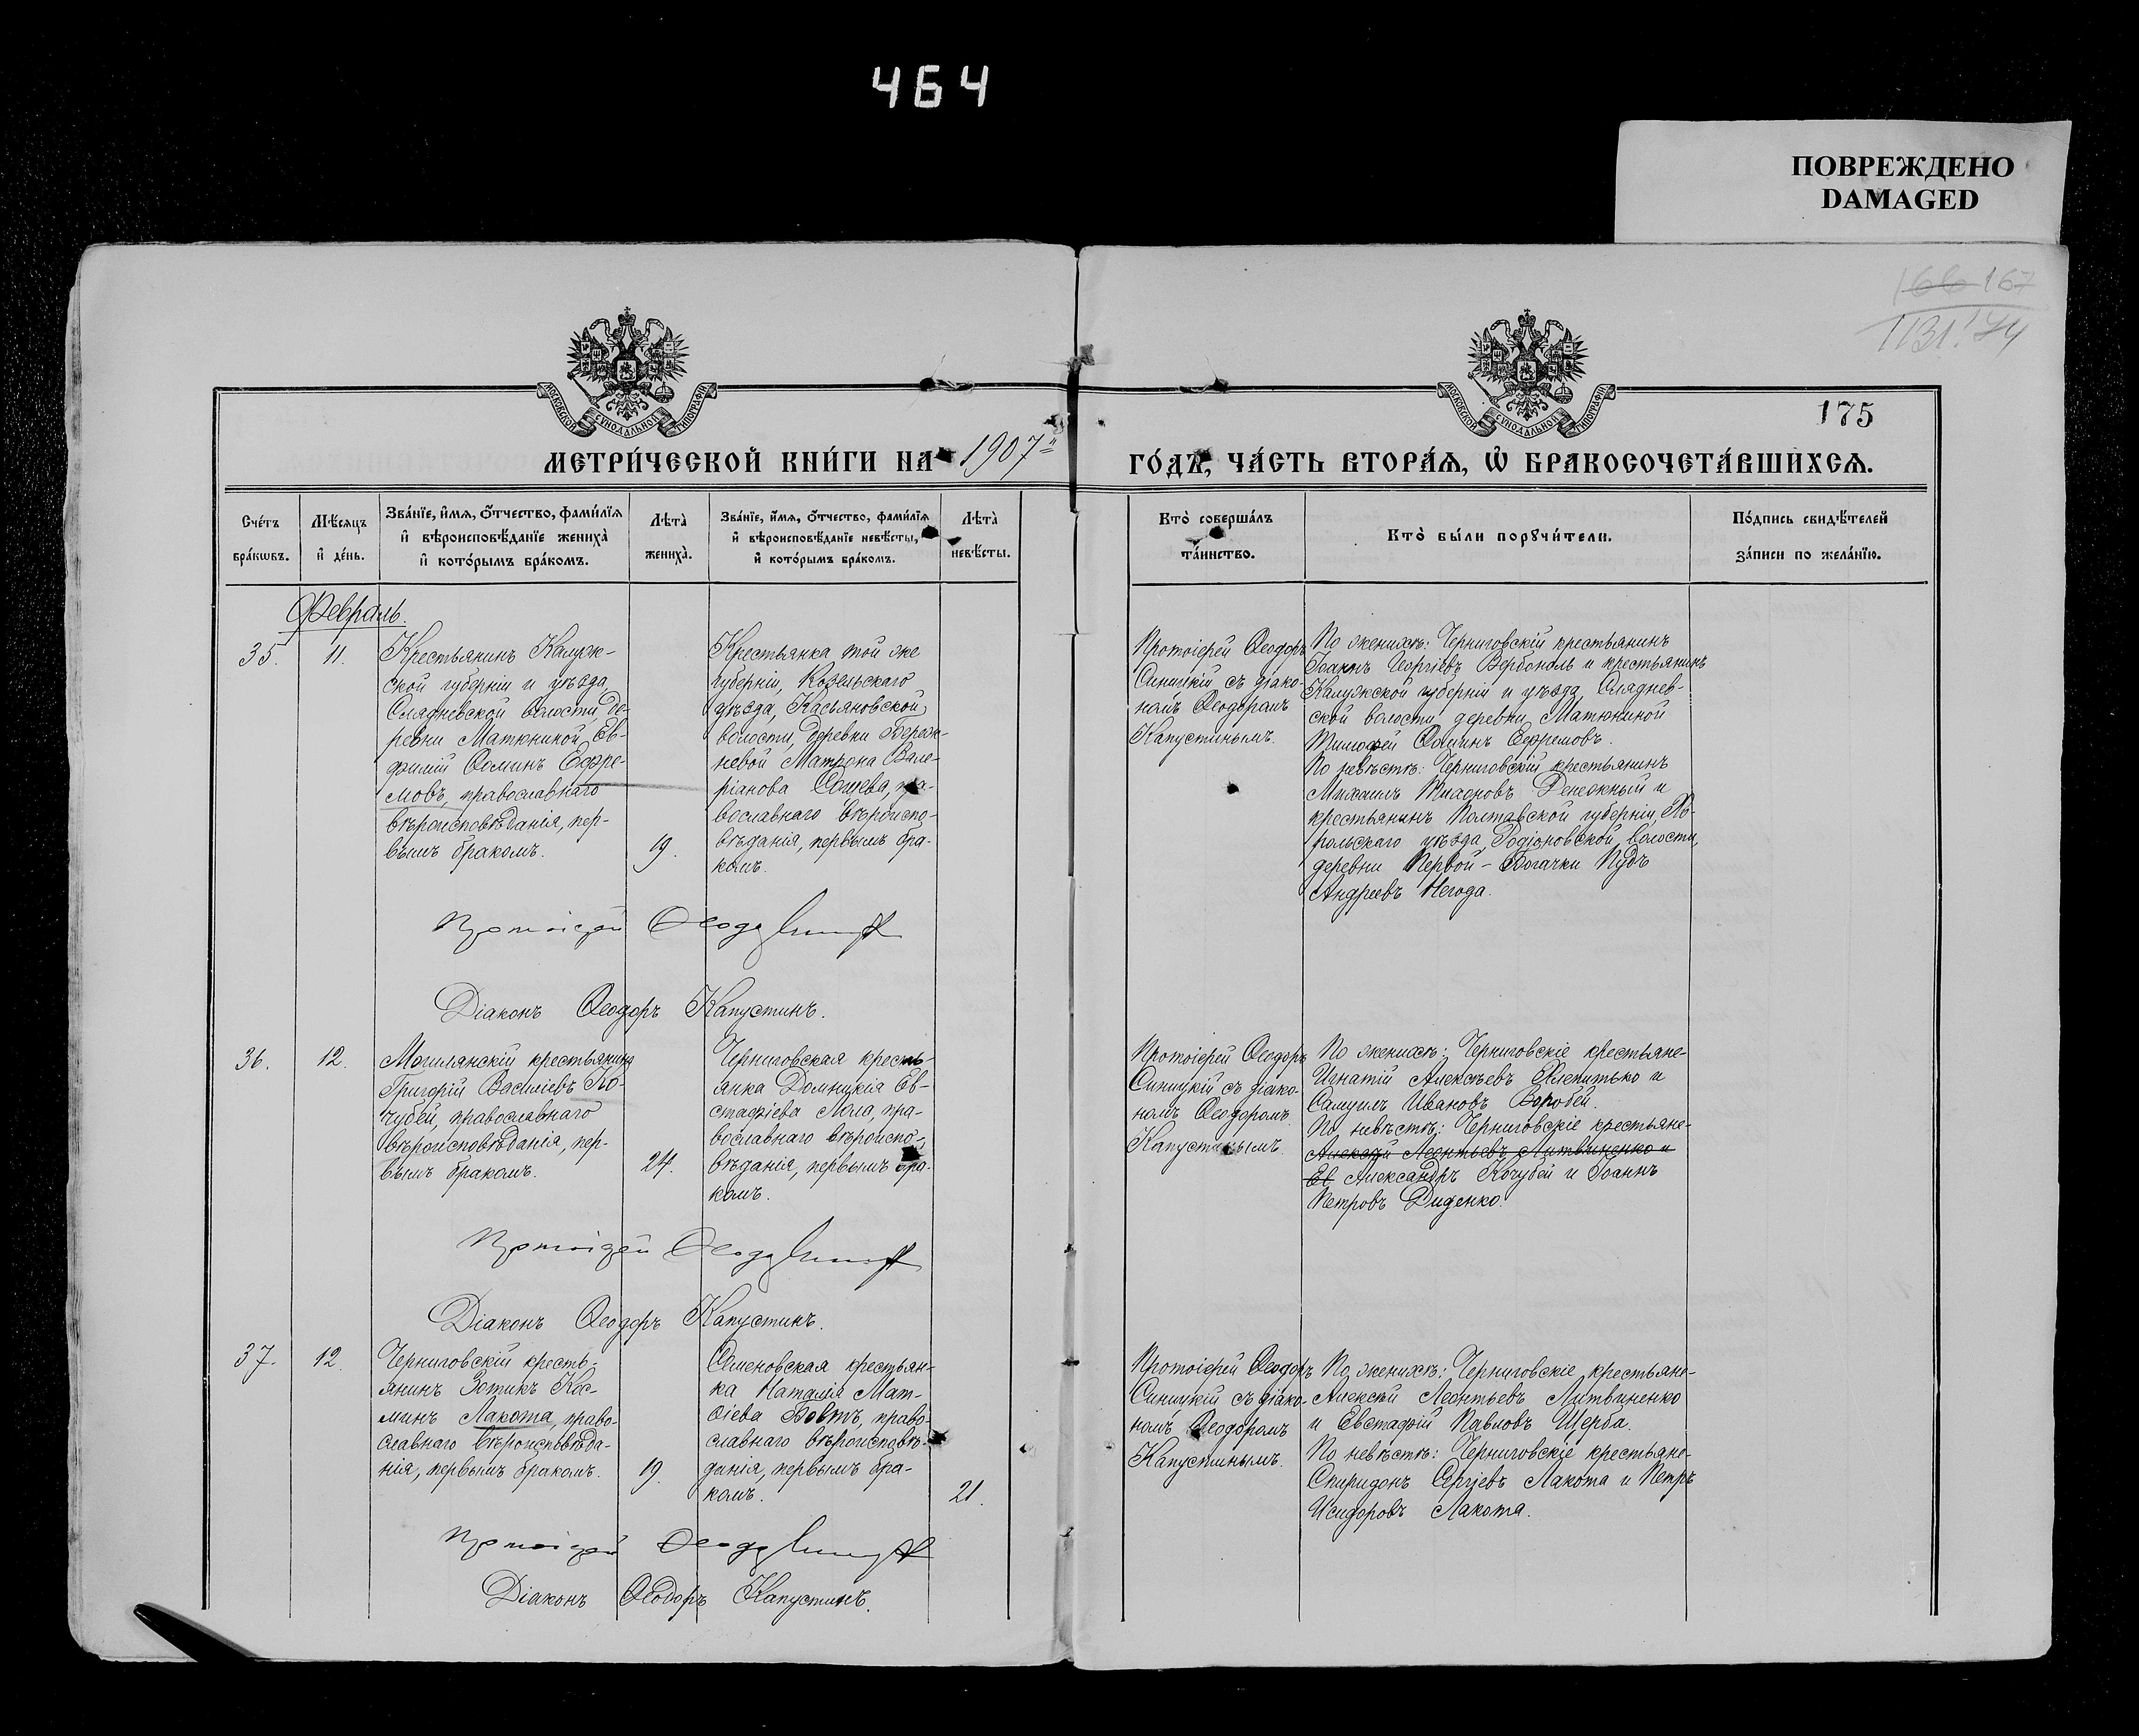 464
ПОВРЕЖДЕНО
DAMAGED
166 167
175
МОСКОВСКОЙ СѴНОДАЛЬНОЙ ТИПОГРАФІИ
МОСКОВСКОЙ СѴНОДАЛЬНОЙ ТИПОГРАФІИ
МЕТРИ́ЧЕСКОЙ КНИ́ГИ НА 1907й
ГО́ДЪ, ЧА́СТЬ ВТОРА́Я, Ѽ БРАКОСОЧЕТА́ВШИХСЯ.
Сче́тъ
бра́кѡвъ.
Мѣ́сяцъ
и҆ де́нь.
Зва́нїе, и҆́мя, ѻ҆́тчество, фами́лїя
и҆ вѣроисповѣ́данїе жениха̀
и҆ кото́рымъ бра́комъ.
Лѣта̀
жениха̀.
Зва́нїе, и҆́мя, ѻ҆́тчество, фами́лїя
и҆ вѣроисповѣ́данїе невѣ́сты,
и҆ кото́рымъ бра́комъ.
Лѣта̀
невѣ́сты.
Кто̀ соверша́лъ
та́инство.
Кто̀ бы́ли порꙋчи́тели.
По́дпись свидѣ́телей
за́писи по жела́нїю.
Февраль.
35.
11.
Крестьянинъ Калуж-
ской губерніи и уѣзда
Слядневской волости, де-
ревни Матюниной Ев-
фимій Ѳоминъ Ефре-
мовъ, православнаго
вѣроисповѣданія, пер-
вымъ бракомъ.
19.
Крестьянка той же
губерніи, Козельскаго
уѣзда, Касьяновской
волости, деревни
невой Матрона Вале-
ріанова пра-
вославнаго вѣроиспо-
вѣданія, первымъ бра-
комъ.
Протоіерей Ѳеодоръ
Синицкій съ діако-
номъ Ѳеодоромъ
Капустинымъ.
По женихѣ: Черниговскій крестьянинъ
Іоаннъ Георгіевъ Вербоноль и крестьянинъ
Калужской губерніи и уѣзда, Сляднев-
ской волости, деревни Матюниной
Тимофей Ѳоминъ Ефремовъ.
По невѣстѣ: Черниговскій крестьянинъ
Михаилъ Денежный и
крестьянинъ Полтавской губерніи, Хо-
рольскаго уѣзда, Родіоновской волости,
деревни Первой-Богачки Пудъ
Андреевъ Негода.
Протоіерей Ѳеодоръ Синицкій
Діаконъ Ѳеодоръ Капустинъ.
36.
12.
Могилянскій крестьянинъ
Григорій Василіевъ Ко-
чубей, православнаго
вѣроисповѣданія, пер-
вымъ бракомъ.
24.
Черниговская кресть-
янка Домникія Ев-
стафіева Лола, пра-
вославнаго вѣроиспо-
вѣданія, первымъ бра-
комъ.
Протоіерей Ѳеодоръ
Синицкій съ діако-
номъ Ѳеодоромъ
Капустинымъ.
По женихѣ: Черниговскіе крестьяне-
Игнатій Алексѣевъ и
Самуилъ Ивановъ Воробей.
По невѣстѣ: Черниговскіе крестьяне-
Алексѣй Леонтьевъ Литвиненко и
Ев Александръ Кочубей и Іоаннъ
Петровъ Диденко.
Протоіерей Ѳеодоръ Синицкій
Діаконъ Ѳеодоръ Капустинъ.
37.
12.
Черниговскій кресть-
янинъ Зотикъ Кос-
минъ Лакота, право-
славнаго вѣроисповѣда-
нія, первымъ бракомъ.
19.
Семеновская крестьян-
ка Наталія Мат-
ѳіева Вовтъ, право-
славнаго вѣроисповѣ-
данія, первымъ бра-
комъ.
21.
Протоіерей Ѳеодоръ
Синицкій съ діако-
номъ Ѳеодоромъ
Капустинымъ.
По женихѣ: Черниговскіе крестьяне-
Алексѣй Леонтьевъ Литвиненко
и Евстафій Павловъ Щерба.
По невѣстѣ: Черниговскіе крестьяне-
Спиридонъ Сергіевъ Лакота и Петръ
Исидоровъ Лакота.
Протоіерей Ѳеодоръ Синицкій
Діаконъ Ѳеодоръ Капустинъ.